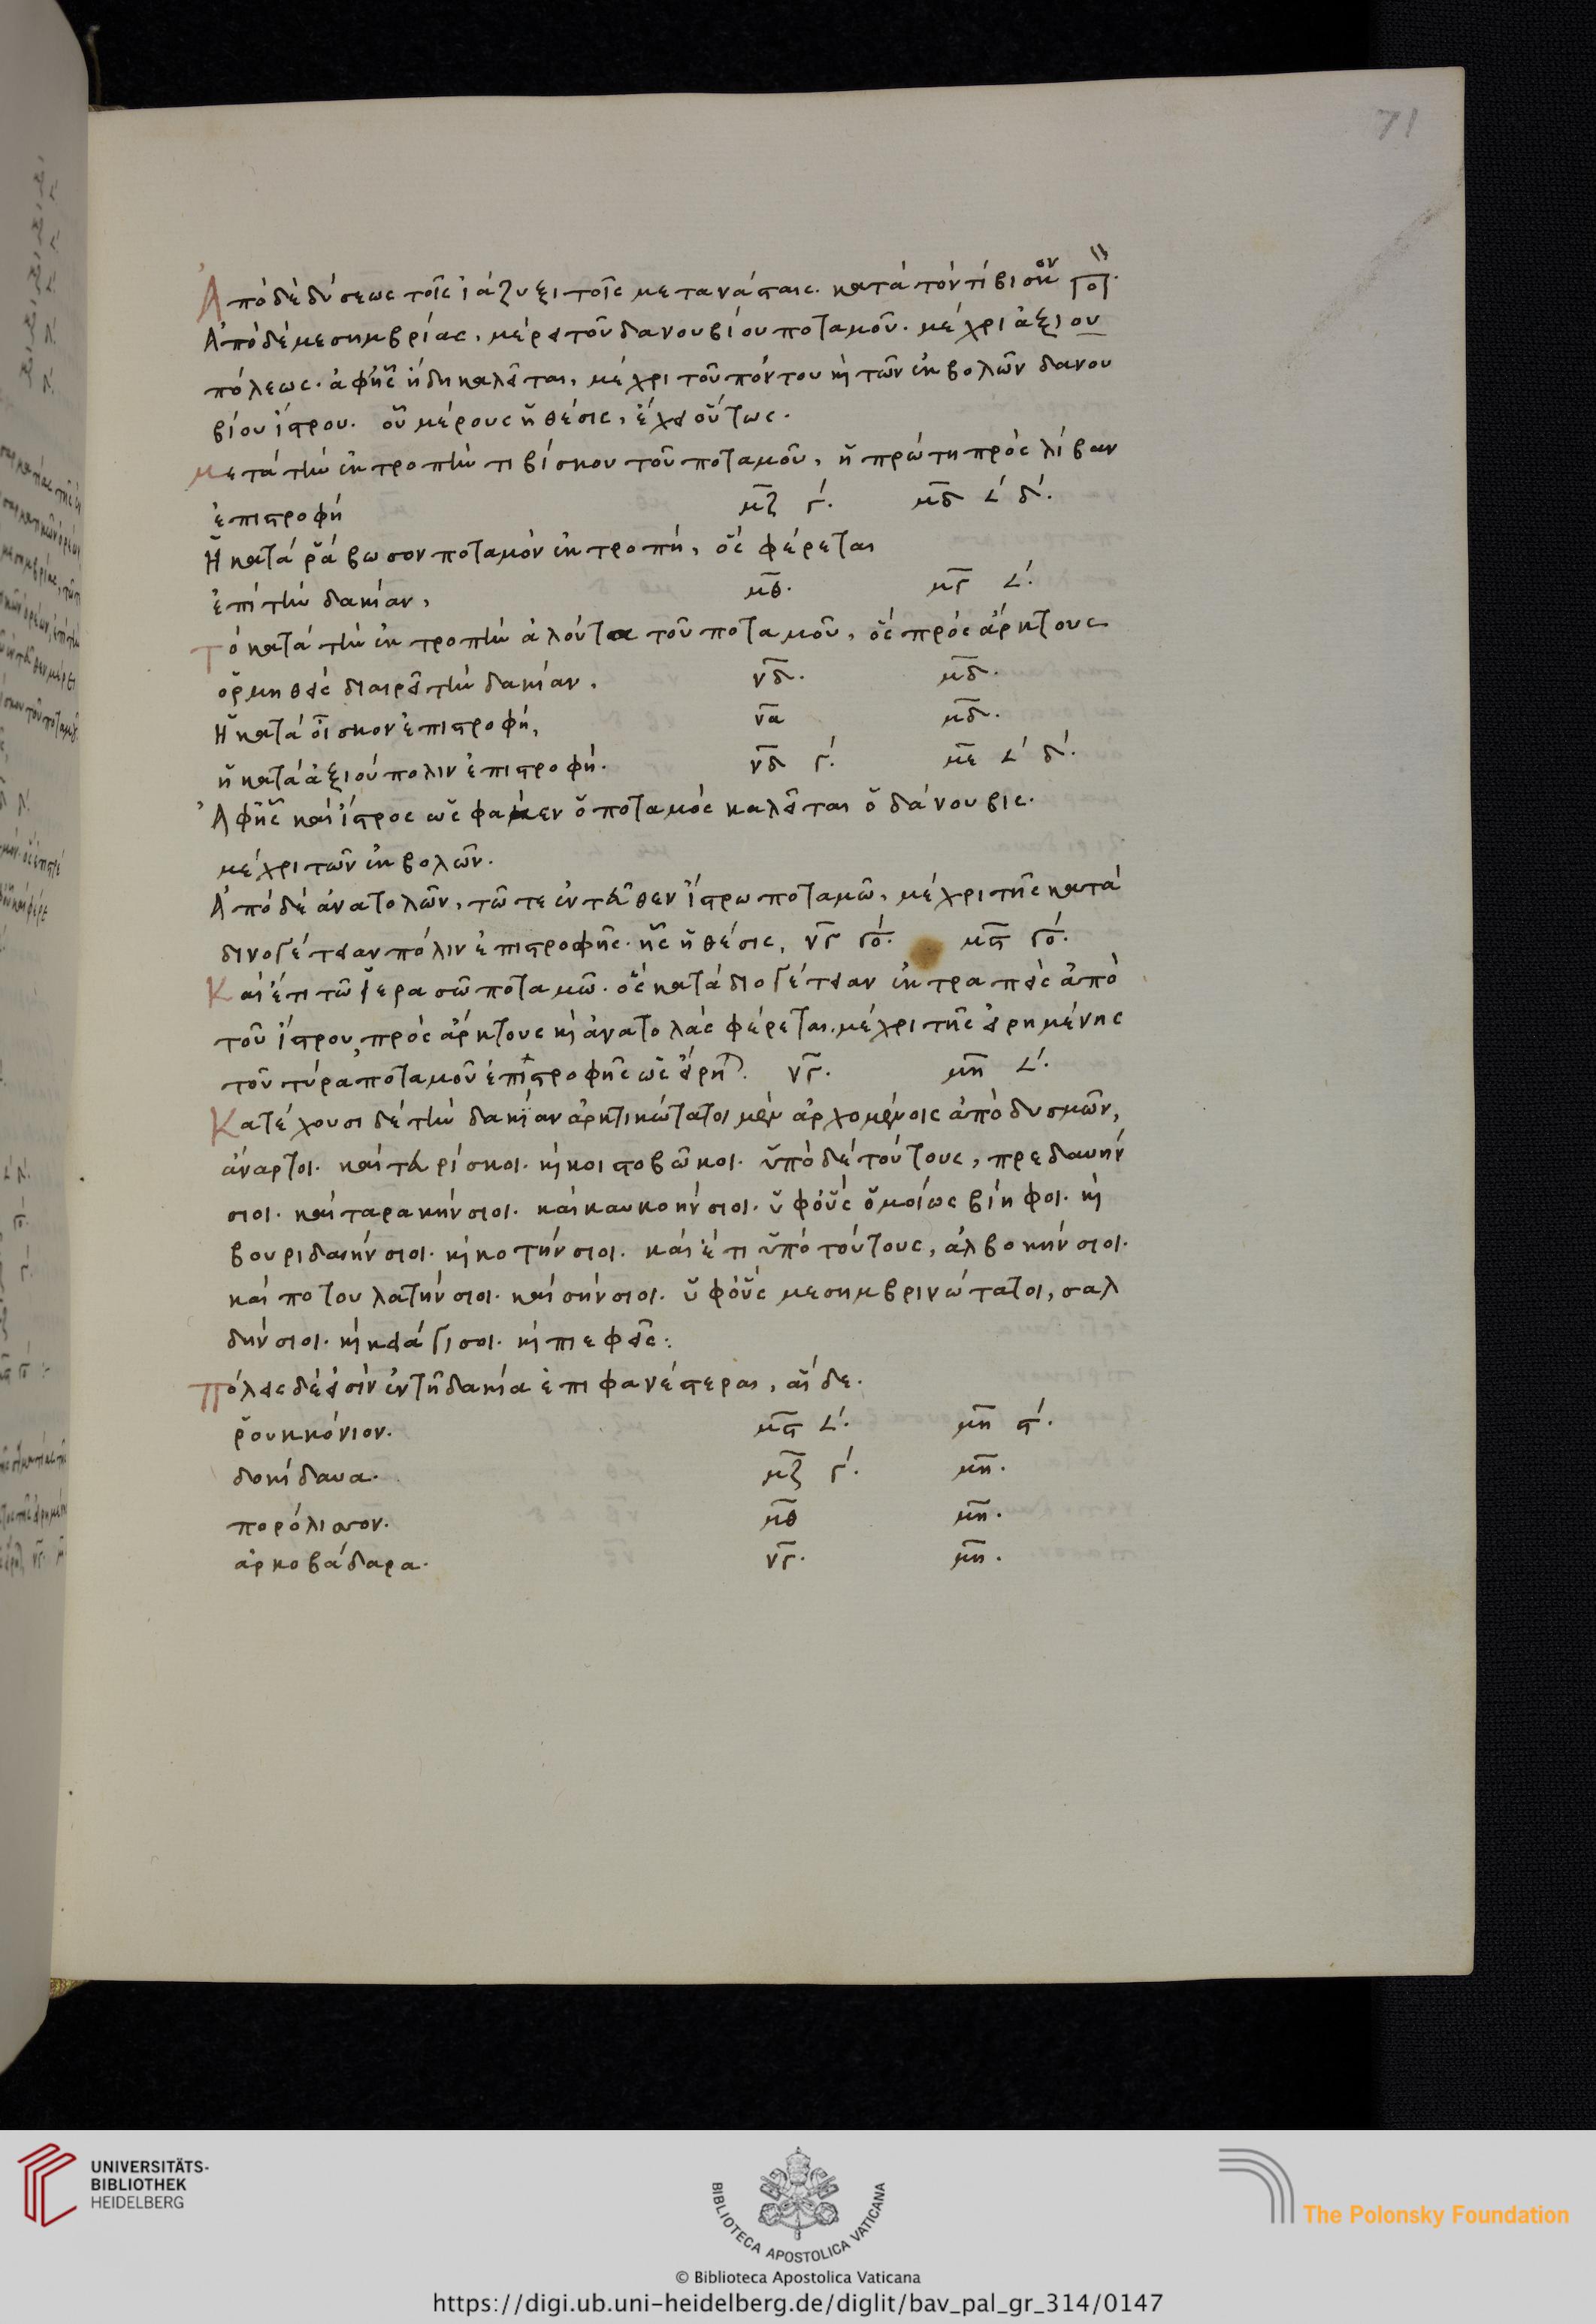 71
Ἀπὸ δὲ δύσεως τοῖς ἰάζυξι τοῖς μετανάσταις. κατὰ τὸν τιβίσκον ποτ.
Ἀπὸ δὲ μεσημβρίας, μέρει τοῦ δανουβίου ποταμοῦ. μέχρι ἀξιου
πόλεως. ἀφ' ἧς ἤδη καλεῖται, μέχρι τοῦ πόντου καὶ τῶν ἐκβολῶν δανου
βίου ἴστρου. οὗ μέρους ἡ θέσις, ἔχει οὕτως.
μετὰ τὴν ἐκτροπὴν τιβίσκου τοῦ ποταμοῦ, ἡ πρώτη πρὸς λίβαν
ἐπιστροφή μ̅ζ̅ γ´. μ̅δ̅ 𐅵´ δ´.
Ἡ κατὰ ῥάβωσον ποταμὸν ἐκτροπή, ὃς φέρεται
ἐπὶ τὴν δακίαν, μ̅θ̅. μ̅γ̅ 𐅵´.
τὸ κατὰ τὴν ἐκτροπὴν ἀλούτα τοῦ ποταμοῦ, ὃς πρὸς ἄρκτους
ὁρμηθεὶς διαιρεῖ τὴν δακίαν. ν̅δ̅. μ̅δ̅.
Ἡ κατὰ οἶσκον ἐπιστροφή, ν̅α̅ μ̅δ̅.
ἡ κατὰ ἀξιούπολιν ἐπιστροφή. ν̅δ̅ γ´. μ̅ε̅ 𐅵´ δ´.
Ἀφ' ἧς καὶ ἴστρος ὡς φαμεν ὁ ποταμὸς καλεῖται ὁ δάνουβις.
μέχρι τῶν ἐκβολῶν.
Ἀπὸ δὲ ἀνατολῶν, τῶ τε ἐντεῦθεν ἴστρω ποταμῶ, μέχρι τῆς κατὰ
δινογέτειαν πόλιν ἐπιστροφῆς. ἧς ἡ θέσις, ν̅γ̅ γο´. μ̅ϛ̅ γο´.
Καὶ ἔτι τῶ ἱερασῶ ποταμῶ. ὃς κατὰ διογέτειαν ἐκτραπεὶς ἀπὸ
τοῦ ἴστρου, πρὸς ἄρκτους καὶ ἀνατολὰς φέρεται. μέχρι τῆς εἰρημένης
τοῦ τύρα ποταμοῦ ἐπιστροφῆς ὡς εἴρηται. ν̅γ̅. μ̅η̅ 𐅵´.
Κατέχουσι δὲ τὴν δακίαν ἀρκτικώτατοι μὲν ἀρχομένοις ἀπὸ δυσμῶν,
ἄναρτοι. καὶ τευρίσκοι. καὶ κοιστοβῶκοι. ὑπὸ δὲ τούτους, πρεδαυήν
σιοι. καὶ ταρακήνσιοι. καὶ καυκοήνσιοι. ὑφ' οὓς ὁμοίως βίηφοι. καὶ
βουριδαιήνσιοι. καὶ κοτήνσιοι. καὶ ἔτι ὑπὸ τούτους, ἀλβοκήνσιοι.
καὶ ποτουλατήνσιοι. καὶ σήνσιοι. ὑφ' οὓς μεσημβρινώτατοι, σαλ
δήνσιοι. καὶ κειάγισοι. καὶ πιεφεῖς:
πόλεις δέ εἰσιν ἐν τῆ δακία ἐπιφανέστεραι, αἵδε.
ῥουκκόνιον. μ̅ϛ̅ 𐅵´. μ̅η̅ ϛ´.
δοκίδαυα. μ̅ζ̅ γ´. μ̅η̅.
πορόλισσον. μ̅θ̅ μ̅η̅.
ἀρκοβάδαρα. ν̅γ̅. μ̅η̅.
UNIVERSITÄTS-
BIBLIOTHEK
HEIDELBERG
BIBLIOTECA APOSTOLICA VATICANA
The Polonsky Foundation
© Biblioteca Apostolica Vaticana
https://digi.ub.uni-heidelberg.de/diglit/bav_pal_gr_314/0147